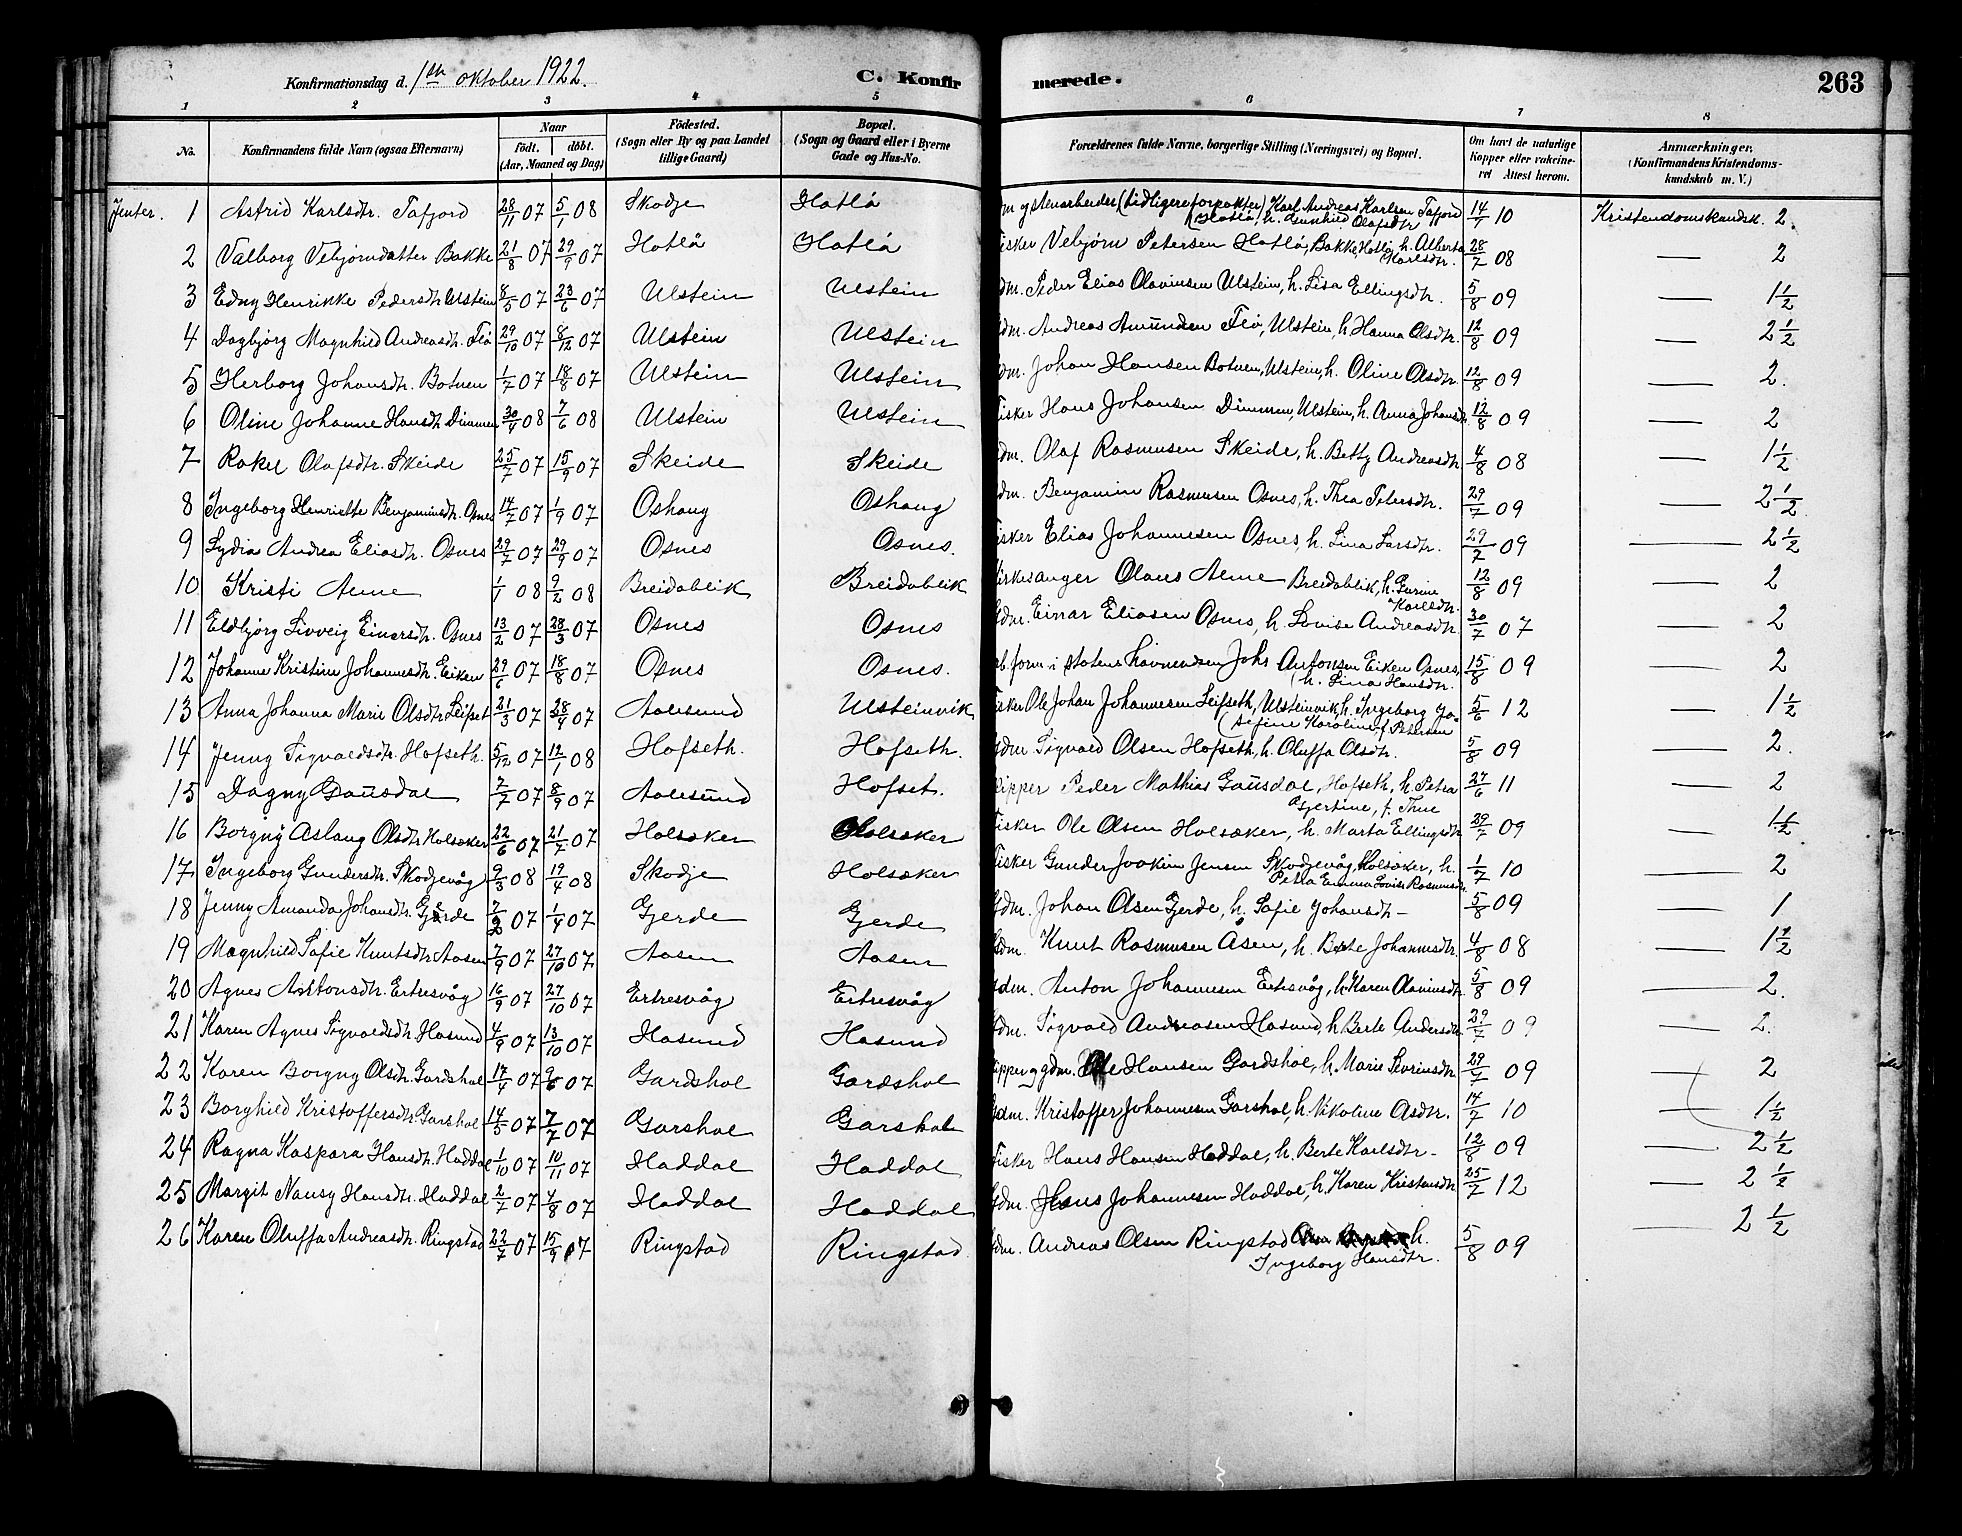 Konfirmationsdag d. 1ste oktober 1922. C. Konfirmerede. 263
1 2 3 4 5 6 7 8
No. Konfirmandens fulde Navn (ogsaa Efternavn) Naar født. døbt. (Aar, Maaned og Dag) Fødested. (Sogn eller By og paa Landet tillige Gaard) Bopæl. (Sogn og Gaard eller i Byerne Gade og Hus-No. Forældrenes fulde Navne, borgerlige Stilling (Næringsvei) og Bopæl. Om havt de naturlige Kopper eller vakcineret Attest herom. Anmærkninger. (Konfirmandens Kristendomskundskab m. V.)
Jenter. 1 Astrid Karlsdtr. Tafjord 28/11 07 5/1 08 Skodje Hatlø om og stenarbeider (tidligere forpakter) Karl Andreas Karlsen Tafjord 14/7 10 Kristendomskundsk. 2.
(Hatlø, h. Gunhild Olafsdtr
2 Valborg Vebjørnsdatter Bakke 21/8 07 29/9 07 Hatlø Hatlø isker Vebjørn Petersen Hatlø, Bakke, Hatlø h. Alberta 28/7 08 — 2
Karlsdtr.
3 Edny Henrikke Pedersdtr Ulstein 8/5 07 23/6 07 Ulstein Ulstein dm. Peder Elias Olavinsen Ulstein, h. Lisa Ellingsdtr. 5/8 09 — 1½
4 Dagbjørg Magnhild Andreasdtr. Flø 29/10 07 8/12 07 Ulstein Ulstein dm. Andreas Amundsen Flø, Ulstein, h. Hanna Olsdtr. 12/8 09 — 2½
5 Herborg Johansdtr. Botnen 1/7 07 18/8 07 Ulstein Ulstein dm. Johan Hansen Botnen, Ulstein, h. Oline Olsdtr. 12/8 09 — 2.
6 Oline Johanne Hansdtr Dimmen 30/4 08 7/6 08 Ulstein Ulstein isker Hans Johansen Dimmen, Ulstein, h. Anna Johansdtr. 12/8 09 — 2
7 Rakel Olafsdtr. Skeide 25/7 07 15/9 07 Skeide Skeide dm. Olaf Rasmusen Skeide, h. Betty Andreasdtr. 4/8 08 — 1½
8 Ingeborg Henriette Benjaminsdtr. Osnes 17/7 07 1/9 07 Oshaug Oshaug dm. Benjamin Rasmusen Osnes, h. Thea Petersdtr. 29/7 09 — 2½
9 Lydia Andrea Eliasdtr. Osnes 29/7 07 29/9 07 Osnes Osnes. isker Elias Johannesen Osnes, h. Lina Larsdtr. 29/7 09 — 2½
10 Kristi Aeme 1/1 08 9/2 08 Breidablik Breidablik irkesanger Olaus Aeme Breidablik, h. Gurine 12/8 09 — 2
Karlsdtr.
11 Eldbjørg Sivveig Einarsdtr. Osnes 13/2 07 28/3 07 Osnes Osnes dm. Einar Eliasen Osnes, h. Lovise Andreasdtr. 30/7 07 — 2
12 Johanne Kristine Johannesdtr. Eiken 29/6 07 18/8 07 Osnes Osnes. form. i statens havnevæsen Johs Antonsen Eiken Osnes, 15/8 09 — 2
(h. Lina Hansdtr.
13 Anna Johanna Marie Olsdtr Leifset 21/3 07 28/4 07 Aalesund Ulsteinvik isker Ole Johan Johannesen Leifseth, Ulsteinvik, h. Ingeborg Jo- 5/6 12 — 1½
(sefine Karoline f. Petersen
14 Jenny Sigvaldsdtr. Hofseth. 5/12 07 12/1 08 Hofseth. Hofseth. dm. Sigvald Olsen Hofseth, h. Oluffa Olsdtr. 5/8 09 — 2.
15 Dagny Gausdal 7/7 07 8/9 07 Aalesund Hofset. kipper Peder Mathias Gausdal, Hofseth, h. Petra 27/6 11 — 2
Gjertine, f. Thue
16 Borgny Aslaug Olsdtr Holsæker 22/6 07 21/7 07 Holsæker Holsæker isker Ole Olsen Holsæker, h. Marta Ellingsdtr 29/7 09 — 1½
17 Ingeborg Gundersdtr. Skodjevåg 9/3 08 19/4 08 Skodje Holsæker isker Gunder Joakim Jensen Skodjevåg, Holsæker, h. 1/7 10 — 2
Petra Emma Lovise Rasmusdtr.
18 Jenny Amanda Johansdtr. Gjerde 7/2 07 1/4 07 Gjerde Gjerde gdm. Johan Olsen Gjerde, h. Sofie Johansdtr — 5/8 09 — 1
19 Magnhild Sofie Knutsdtr Aasen 7/9 07 27/10 07 Aasen Aasen gdm. Knut Rasmusen Åsen, h. Berte Johannesdtr. 4/8 08 — 1½
20 Agnes Antonsdtr. Ertresvåg 16/9 07 27/10 07 Ertresvåg Ertresvåg gdm. Anton Johannesen Ertresvåg, h. Karen Olavinsdtr. 5/8 09 — 2.
21 Karen Agnes Sigvaldsdtr. Hasund 4/9 07 13/10 07 Hasund Hasund gdm. Sigvald Andreasen Hasund, h. Berte Andersdtr. 29/7 09 — 2.
22 Karen Borgny Olsdtr. Gardshol 17/4 07 9/6 07 Gardshol Gardshol kipper og gdm. Ole Hansen Gardshol, h. Marie Sevrinsdtr 29/7 09 — 2
23 Borghild Kristoffersdtr. Garshol 14/5 07 7/7 07 Garshol Garshol gdm. Kristoffer Johannesen Garshol, h. Nikoline Asdtr. 14/7 10 — 1½
24 Ragna Kaspara Hansdtr. Haddal 1/10 07 10/11 07 Haddal Haddal isker Hans Hansen Haddal, h. Berte Karlsdtr — 12/8 09 — 2½
25 Margit Nansy Hansdtr. Haddal 2/7 07 4/8 07 Haddal Haddal gdm. Hans Johannesen Haddal, h. Karen Kristensdtr 25/7 12 — 2½
26 Karen Oluffa Andreasdtr. Ringstad 22/7 07 15/9 07 Ringstad Ringstad. gdm. Andreas Olsen Ringstad h. 5/8 09 — 2½
Ingeborg Hansdtr.